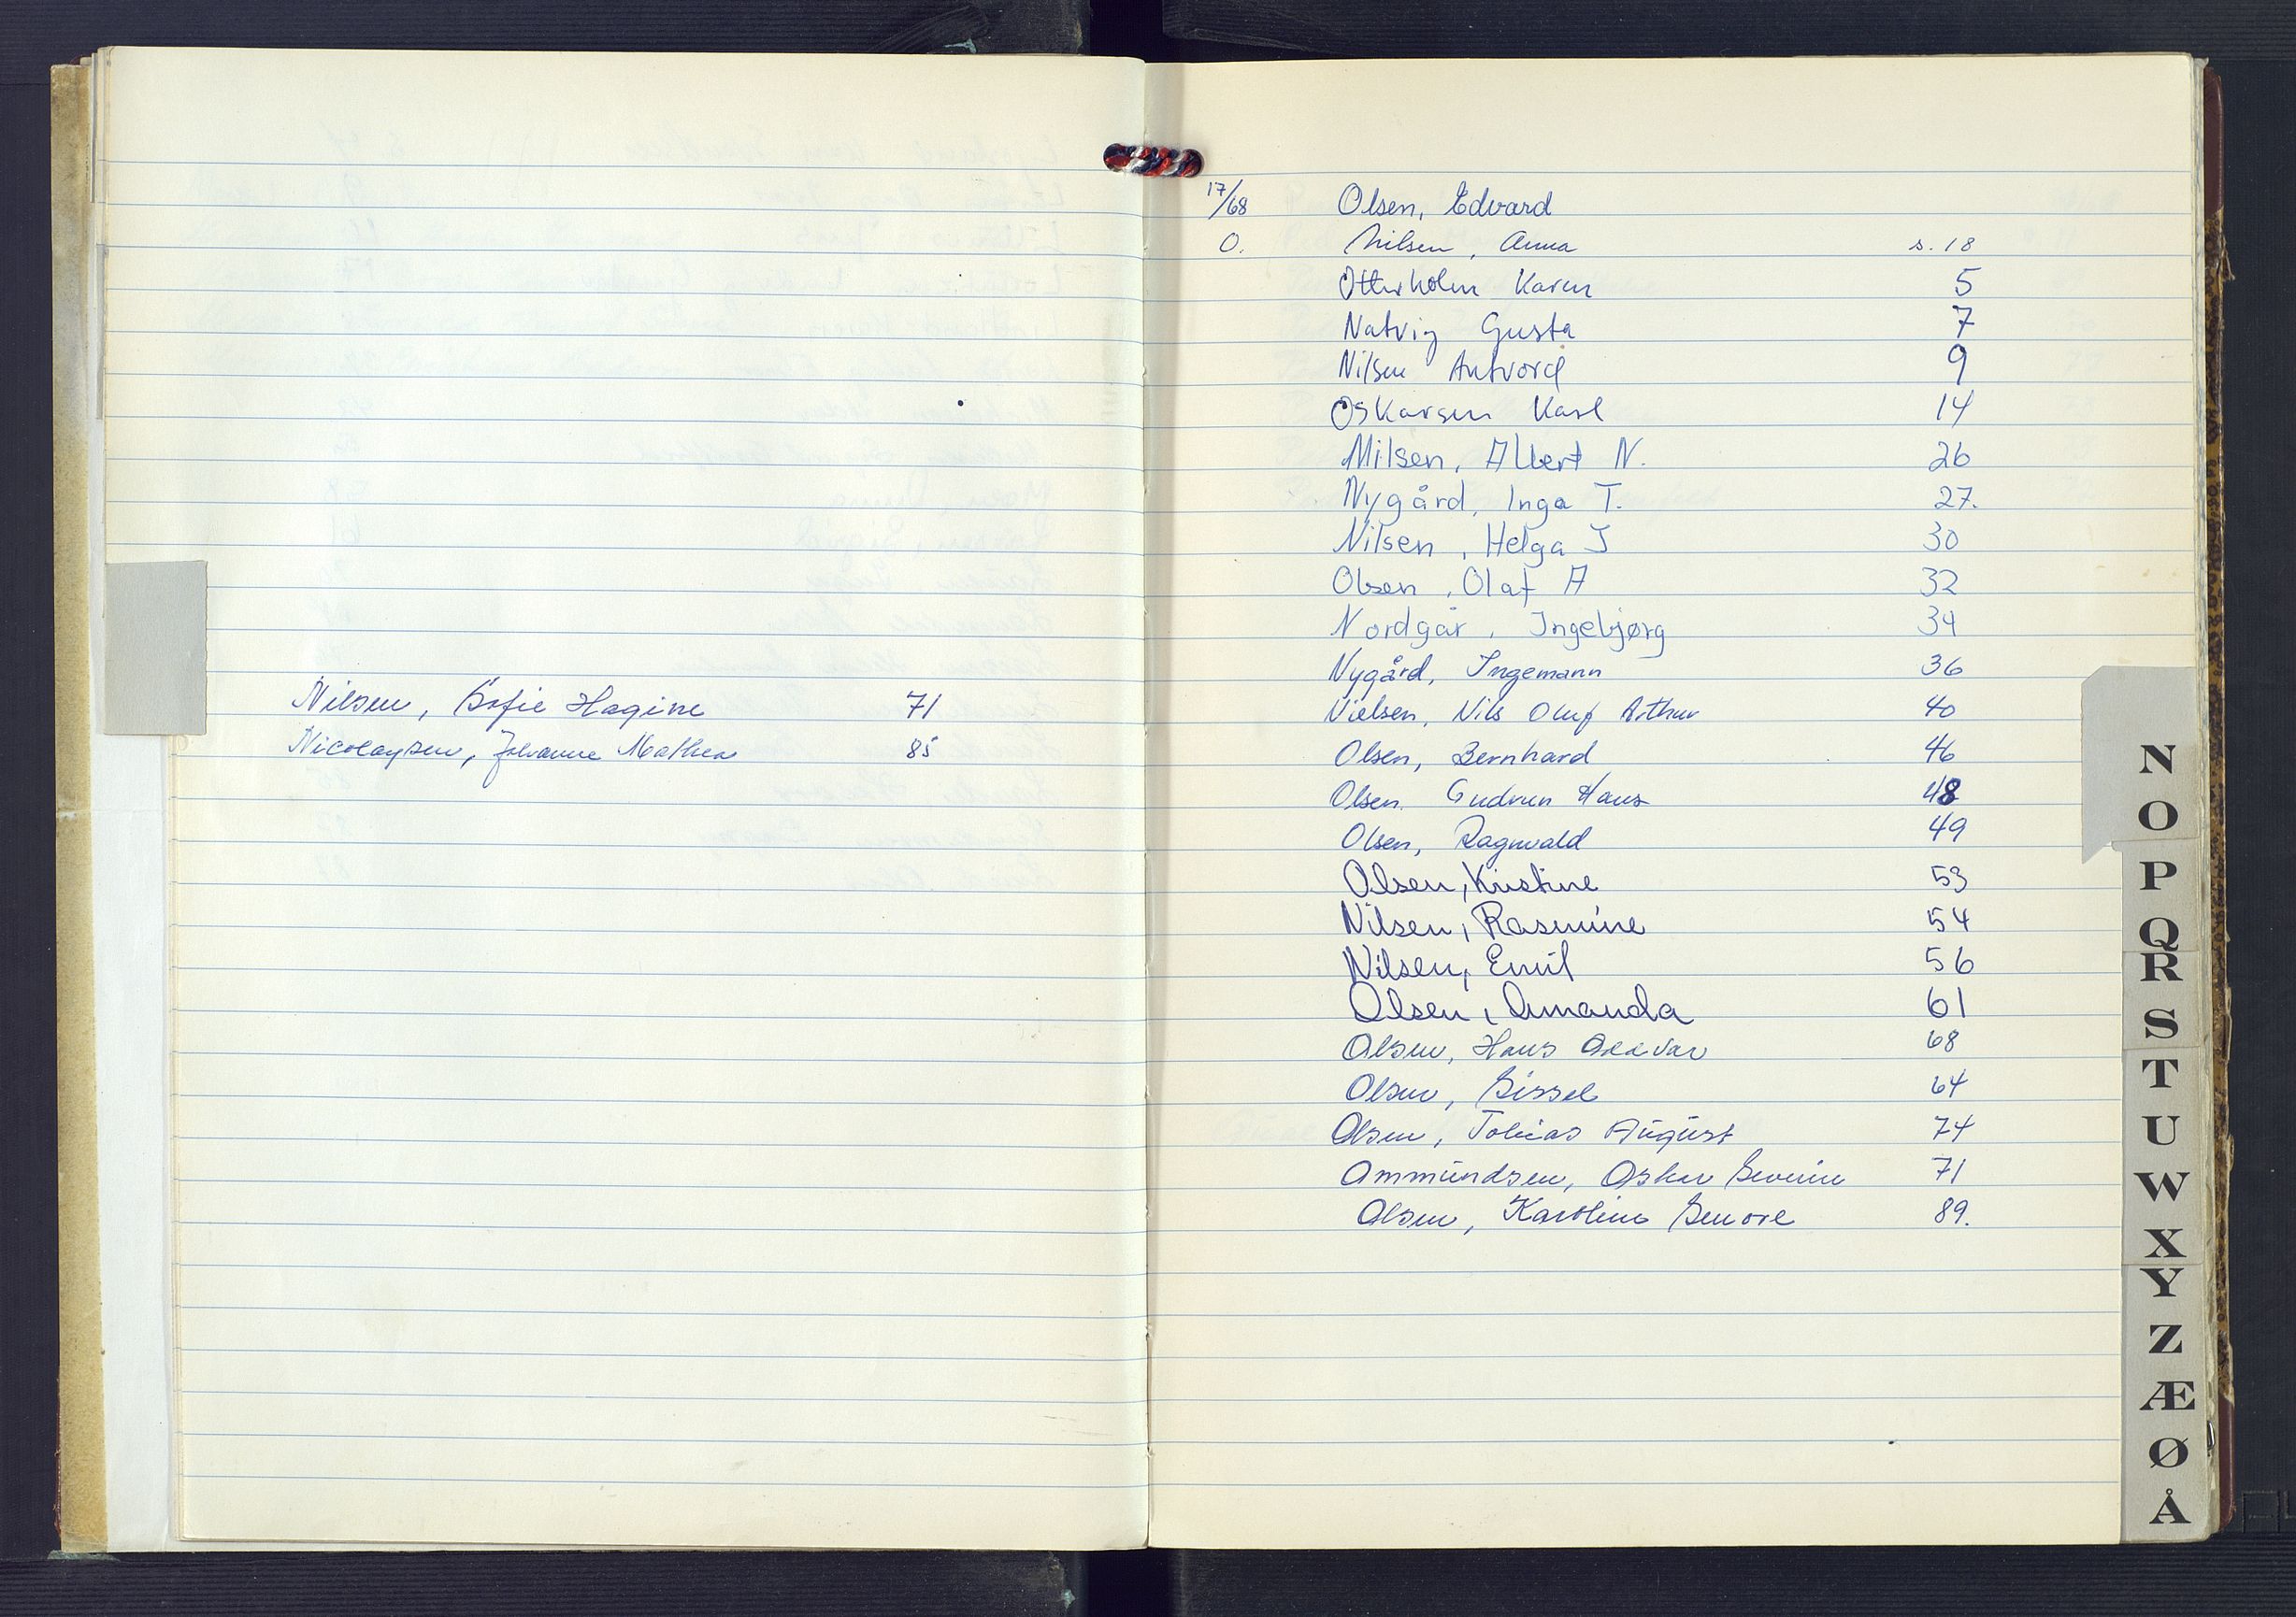 Nilsen, Sofie Hagine 71
Nicolaysen, Johanne Mathea 85
17/68 Olsen, Edvard
O. Nilsen, Anna s. 18
Otterholm Karen 5
Natvig Gusta 7
Nilsen Antvord 9
Oskarsen Karl 14
Nilsen, Albert N. 26
Nygård, Inga T. 27.
Nilsen, Helga J 30
Olsen, Olaf A 32
Nordgår, Ingebjørg 34
Nygård, Ingemann 36
Nielsen, Nils Oluf Arthur 40
Olsen, Bernhard 46
Olsen. Gudrun Hans 48
Olsen, Ragnvald 49
Olsen, Kristine 53
Nilsen, Rasmine 54
Nilsen, Emil 56
Olsen, Amanda 61
Olsen, Hans 68
Olsen, Sissel 64
Olsen, Tobias August 74
Ammundsen, Oskar Severin 71
Olsen, Karoline 89.
N
O
P
Q
R
S
T
U
W
X
Y
Z
Æ
Ø
Å